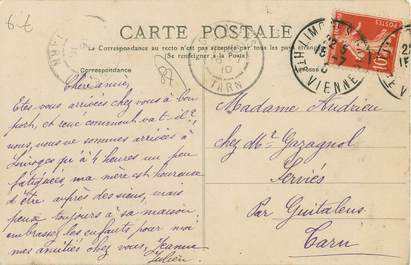 6 €
CARTE POSTALE
La Correspondance au recto n'est pas acceptée par tous les pays étrangers
(Se renseigner à la Poste)
Correspondance
Chère amie,
Etes vous arrivées chez vous à bon
port, et René comment va-t-il ?
nous, nous ne sommes arrivées à
Limoges qu'à 4 heures un peu
fatiguées, ma mère est heureuse
d'être auprès des siens, mais
peux toujours à sa maison,
embrassez les enfants pour moi
mes amitiés chez vous, Jeanne
Julien
10
TARN
LIMOGES
VIENNE
10
Madame Andrieu
chez Mr Gazagnol
Serviès
Par Guitalens
Tarn